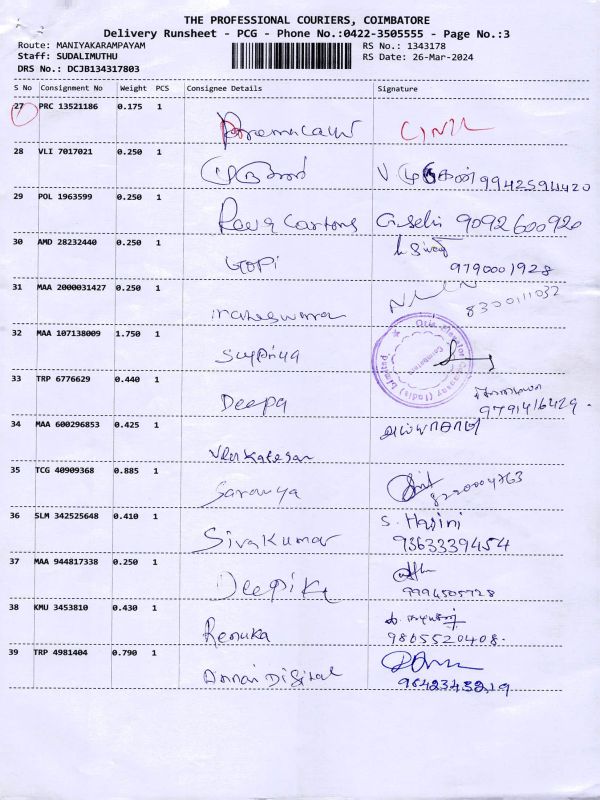 THE PROFESSIONAL COURIERS, COIMBATORE
Delivery Runsheet - PCG - Phone No.:0422-3505555 - Page No.:3
Route: MANIYAKARAMPAYAM RS No.: 1343178
Staff: SUDALIMUTHU RS Date: 26-Mar-2024
DRS No.: DCJB134317803
S No Consignment No Weight PCS Consignee Details Signature
27 PRC 13521186 0.175 1
28 VLI 7017021 0.250 1
9942594420
29 POL 1963599 0.250 1
Cartons G. Selvi 9092600920
30 AMD 28232440 0.250 1
Gopi
9790001928
31 MAA 2000031427 0.250 1
8300111032
Maheswaran
32 MAA 107138009 1.750 1
Supriya
Otis Elevator Company (India) Limited
Coimbatore
33 TRP 6776629 0.440 1
Deepa 9791416429.
34 MAA 600296853 0.425 1
Venkatesan
35 TCG 40909368 0.885 1
Saranya 8220004763
36 SLM 342525648 0.410 1
S. Harini
Sivakumar 9363339454
37 MAA 944817338 0.250 1
Deepika 9994505728
38 KMU 3453810 0.430 1
Renuka 9865520408.
39 TRP 4981404 0.790 1
Annai Digital 9642343219